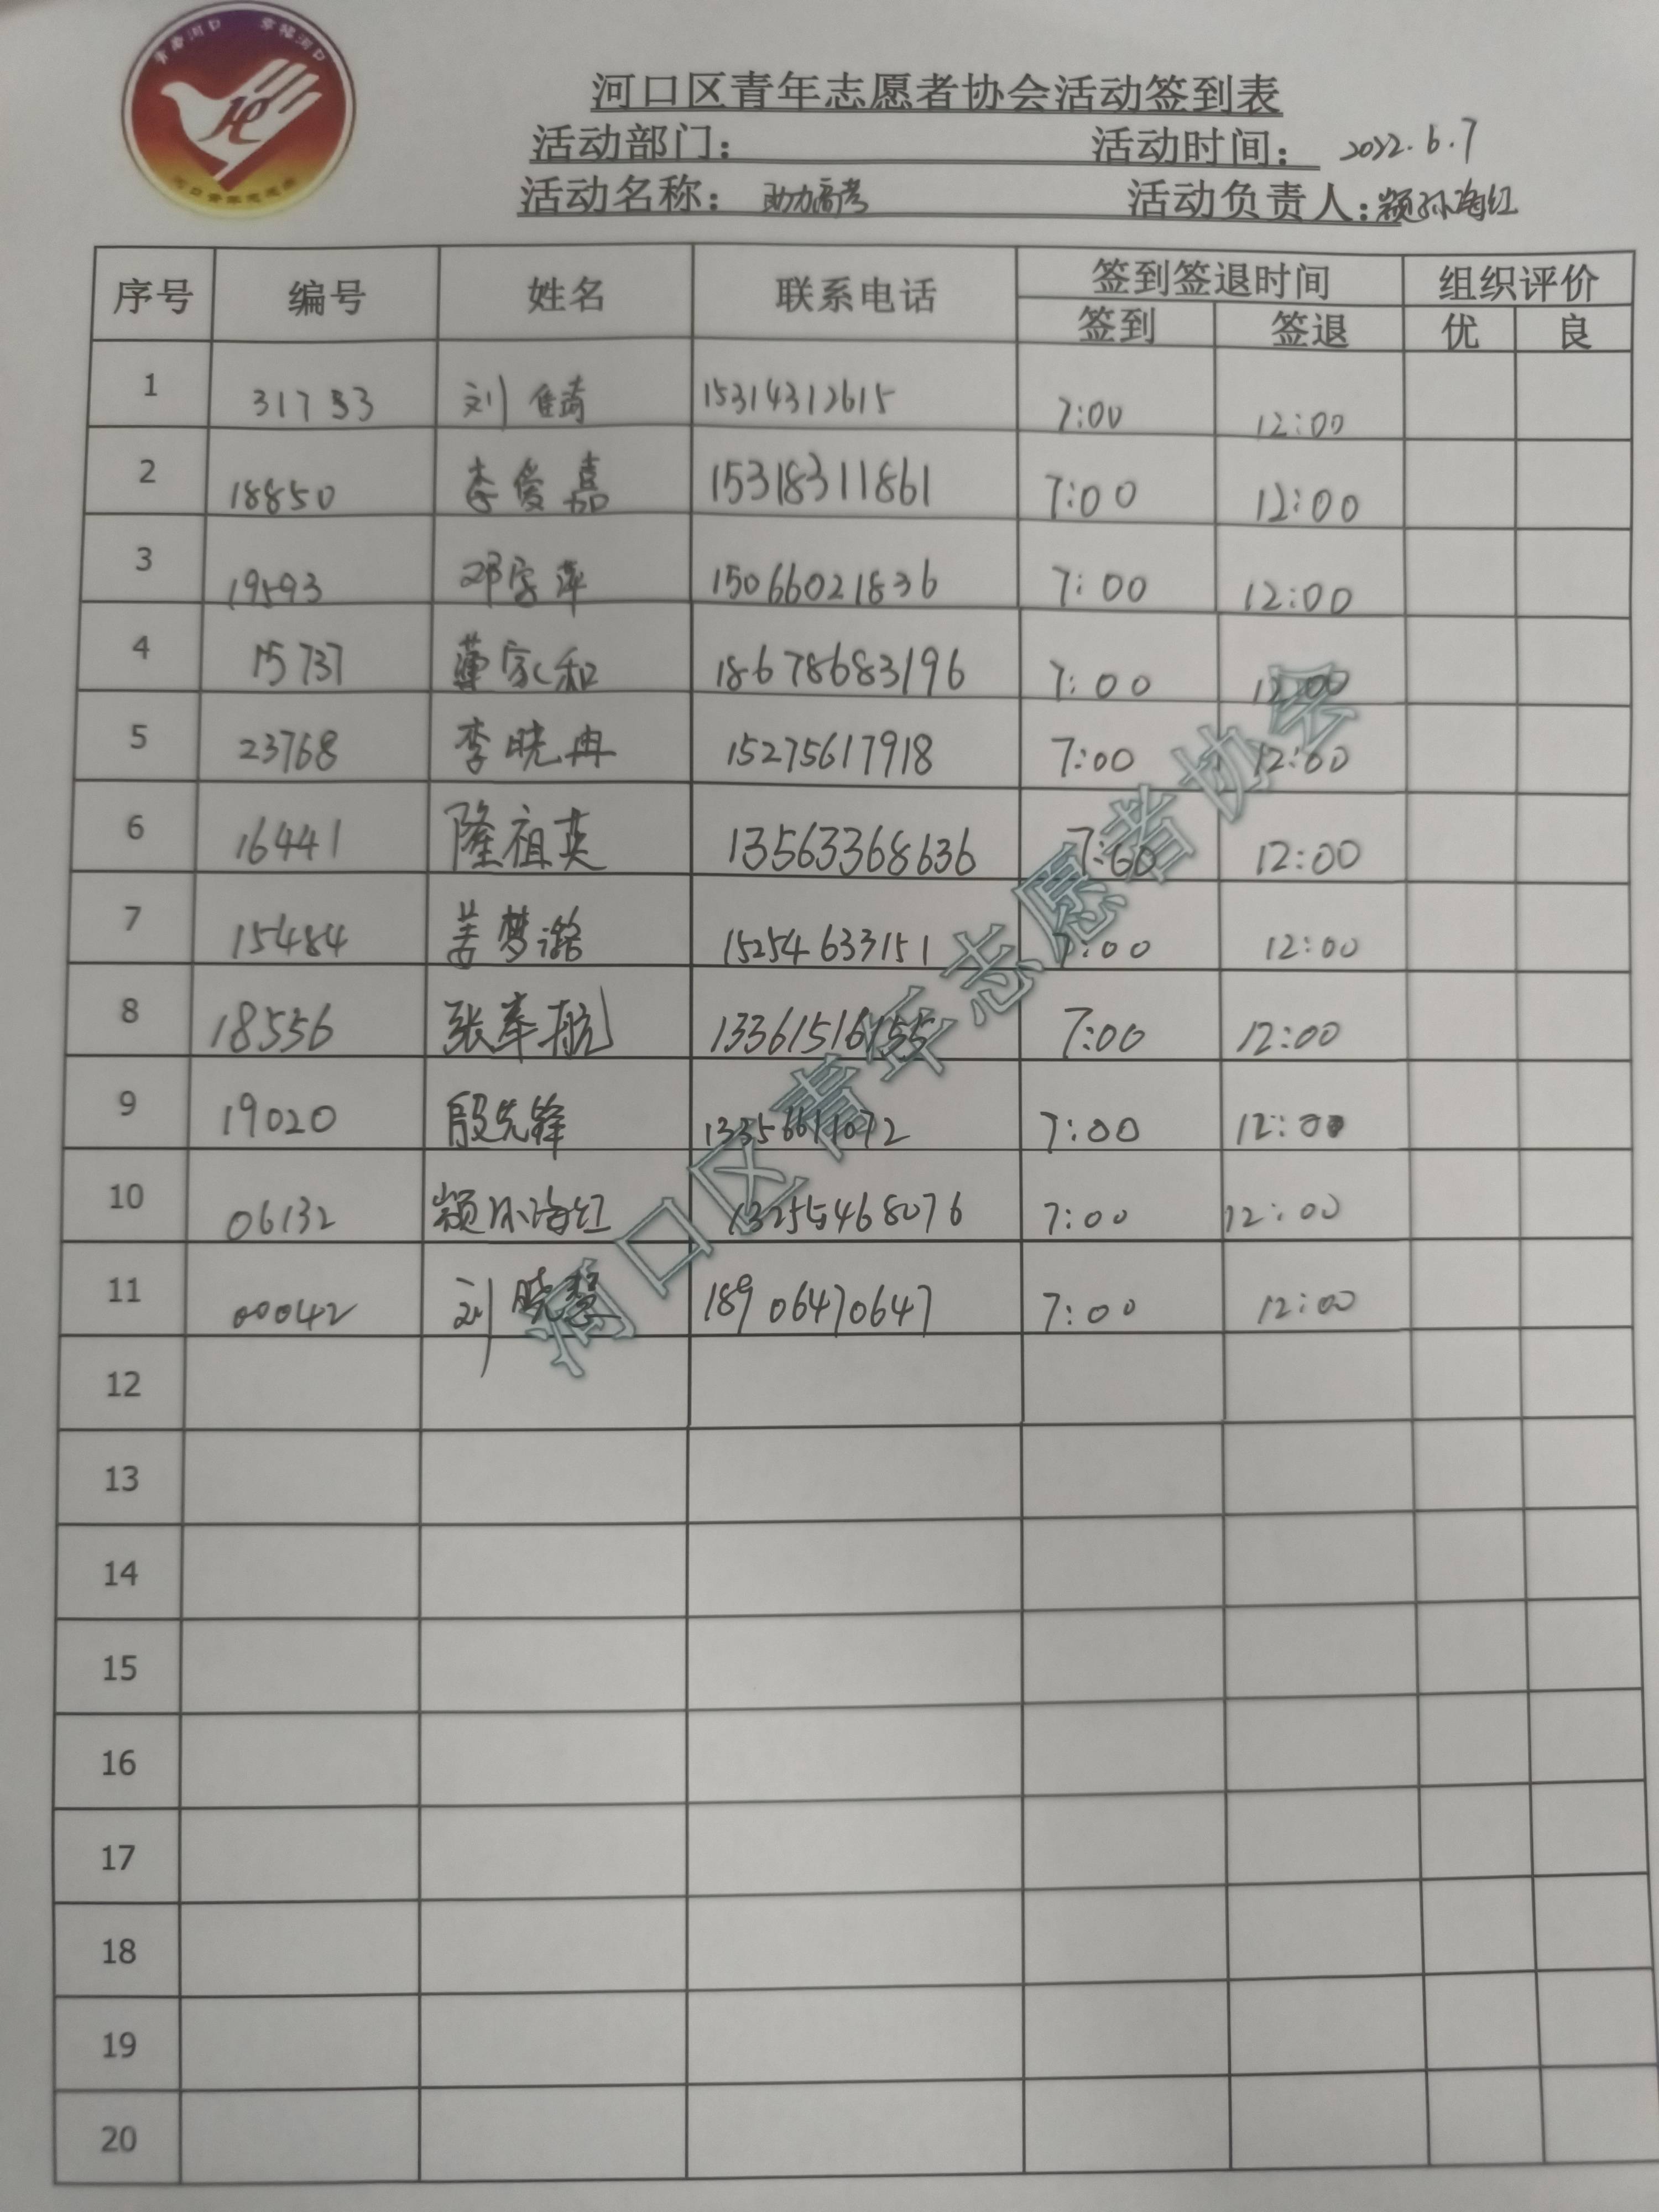 青春河口 幸福河口
河口区青年志愿者协会活动签到表
活动部门： 活动时间： 2022.6.7
活动名称： 助力高考 活动负责人： 颛孙海红
序号 编号 姓名 联系电话 签到签退时间 组织评价
签到 签退 优 良
1 31753 刘 15314312615 7:00 12:00
2 18850 李爱嘉 15318311861 7:00 12:00
3 19593 邓宝萍 15066021836 7:00 12:00
4 15737 董家和 18678683196 7:00 12:00
5 23768 李晓冉 15275617918 7:00 12:00
6 16441 隆祖英 13563368636 7:00 12:00
7 15484 姜梦潞 15254633151 7:00 12:00
8 18556 张奉航 13361516155 7:00 12:00
9 19020 殷先锋 7:00 12:00
10 06132 颛孙海红 13255468076 7:00 12:00
11 00042 刘晓慧 18906470647 7:00 12:00
12
13
14
15
16
17
18
19
20
河口区青年志愿者协会